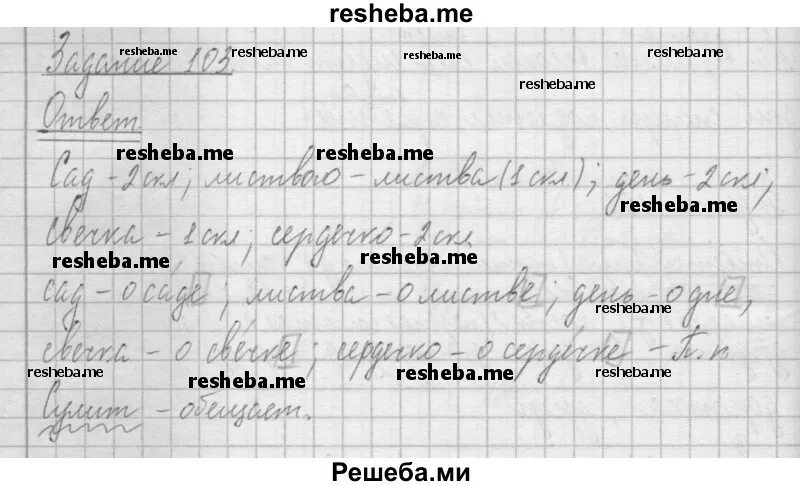 resheba.me
Задание 103 resheba.me resheba.me resheba.me
resheba.me
Ответ
resheba.me resheba.me
Сад - 2 скл; листвою - листва (1 скл.); день - 2 скл;
resheba.me
свечка - 1 скл; сердечко - 2 скл.
resheba.me resheba.me
сад - о саде; листва - о листве; день - о дне,
resheba.me
свечка - о свечке; сердечко - о сердечке - П. п
resheba.me resheba.me resheba.me resheba.me
Сулит - обещает.
Решеба.ми